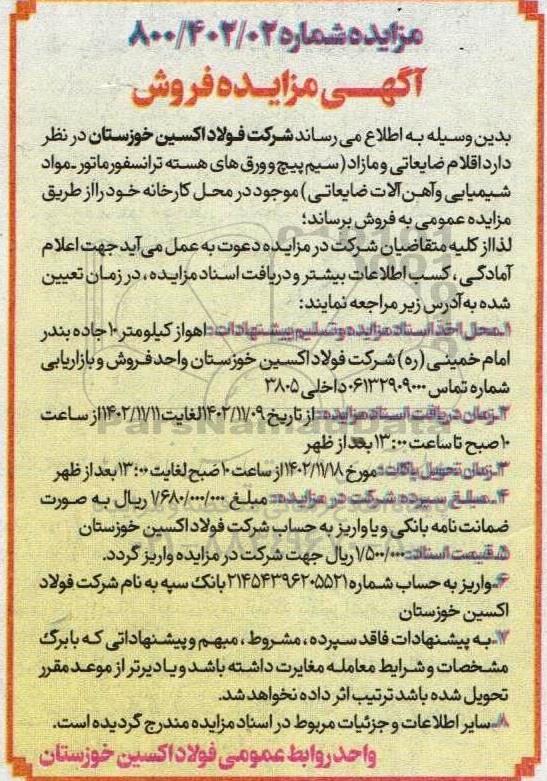 مزایده شماره ۸۰۰/۴۰۲/۰۲
آگهی مزایده فروش
بدین وسیله به اطلاع می رساند شرکت فولاد اکسین خوزستان در نظر
دارد اقلام ضایعاتی و مازاد (سیم پیچ و ورق های هسته ترانسفورماتور ـ مواد
شیمیایی و آهن آلات ضایعاتی) موجود در محل کارخانه خود را از طریق
مزایده عمومی به فروش برساند؛
لذا از کلیه متقاضیان شرکت در مزایده دعوت به عمل می آید جهت اعلام
آمادگی، کسب اطلاعات بیشتر و دریافت اسناد مزایده، در زمان تعیین
شده به آدرس زیر مراجعه نمایند:
۱ـ محل اخذ اسناد مزایده و تسلیم پیشنهادات: اهواز کیلومتر ۱۰ جاده بندر
امام خمینی (ره) شرکت فولاد اکسین خوزستان واحد فروش و بازاریابی
شماره تماس ۰۶۱۳۲۹۰۹۰۰۰ داخلی ۳۸۰۵
۲ـ زمان دریافت اسناد مزایده: از تاریخ ۱۴۰۲/۱۱/۰۹ لغایت ۱۴۰۲/۱۱/۱۱ از ساعت
۱۰ صبح تا ساعت ۱۳:۰۰ بعد از ظهر
۳ـ زمان تحویل پاکات: مورخ ۱۴۰۲/۱۱/۱۸ از ساعت ۱۰ صبح لغایت ۱۳:۰۰ بعد از ظهر
۴ـ مبلغ سپرده شرکت در مزایده: مبلغ ۱/۶۸۰/۰۰۰/۰۰۰ ریال به صورت
ضمانت نامه بانکی و یا واریز به حساب شرکت فولاد اکسین خوزستان
۵ـ قیمت اسناد: ۱/۵۰۰/۰۰۰ ریال جهت شرکت در مزایده واریز گردد.
۶ـ واریز به حساب شماره ۲۱۴۵۴۳۹۶۲۰۵۵۲۱ بانک سپه به نام شرکت فولاد
اکسین خوزستان
۷ـ به پیشنهادات فاقد سپرده، مشروط، مبهم و پیشنهاداتی که با برگ
مشخصات و شرایط معامله مغایرت داشته باشد و یا دیرتر از موعد مقرر
تحویل شده باشد ترتیب اثر داده نخواهد شد.
۸ـ سایر اطلاعات و جزئیات مربوط در اسناد مزایده مندرج گردیده است.
واحد روابط عمومی فولاد اکسین خوزستان